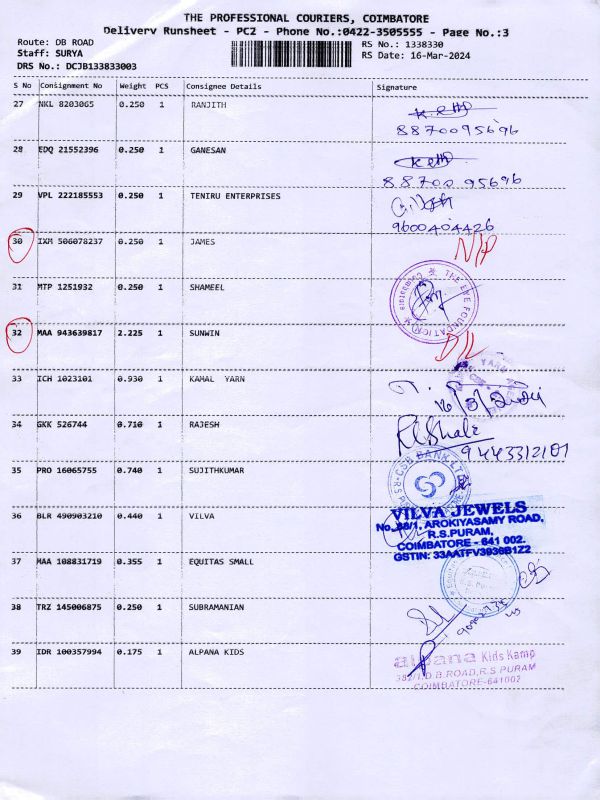 THE PROFESSIONAL COURIERS, COIMBATORE
Delivery Runsheet - PC2 - Phone No.:0422-3505555 - Page No.:3
Route: DB ROAD
Staff: SURYA
DRS No.: DCJB133833003
RS No.: 1338330
RS Date: 16-Mar-2024
S No Consignment No Weight PCS Consignee Details Signature
27 NKL 8203065 0.250 1 RANJITH
8870095696
28 EDQ 21552396 0.250 1 GANESAN
88700 95696
29 VPL 222185553 0.250 1 TENIRU ENTERPRISES
9600404426
30 IXM 506078237 0.250 1 JAMES
N/P
31 MTP 1251932 0.250 1 SHAMEEL
THE EYE FOUNDATION
32 MAA 943639817 2.225 1 SUNWIN
DL
33 ICH 1023101 0.930 1 KAMAL YARN
34 GKK 526744 0.710 1 RAJESH
9443312101
35 PRO 16065755 0.740 1 SUJITHKUMAR
CSB BANK LTD
36 BLR 490903210 0.440 1 VILVA
VILVA JEWELS
No. 88/1, AROKIYASAMY ROAD,
R.S.PURAM,
COIMBATORE - 641 002.
GSTIN: 33AATFV3936B1Z2
37 MAA 108831719 0.355 1 EQUITAS SMALL
38 TRZ 145006875 0.250 1 SUBRAMANIAN
39 IDR 100357994 0.175 1 ALPANA KIDS
alpana Kids Kamp
D.B.ROAD,R.S.PURAM
COIMBATORE-641002